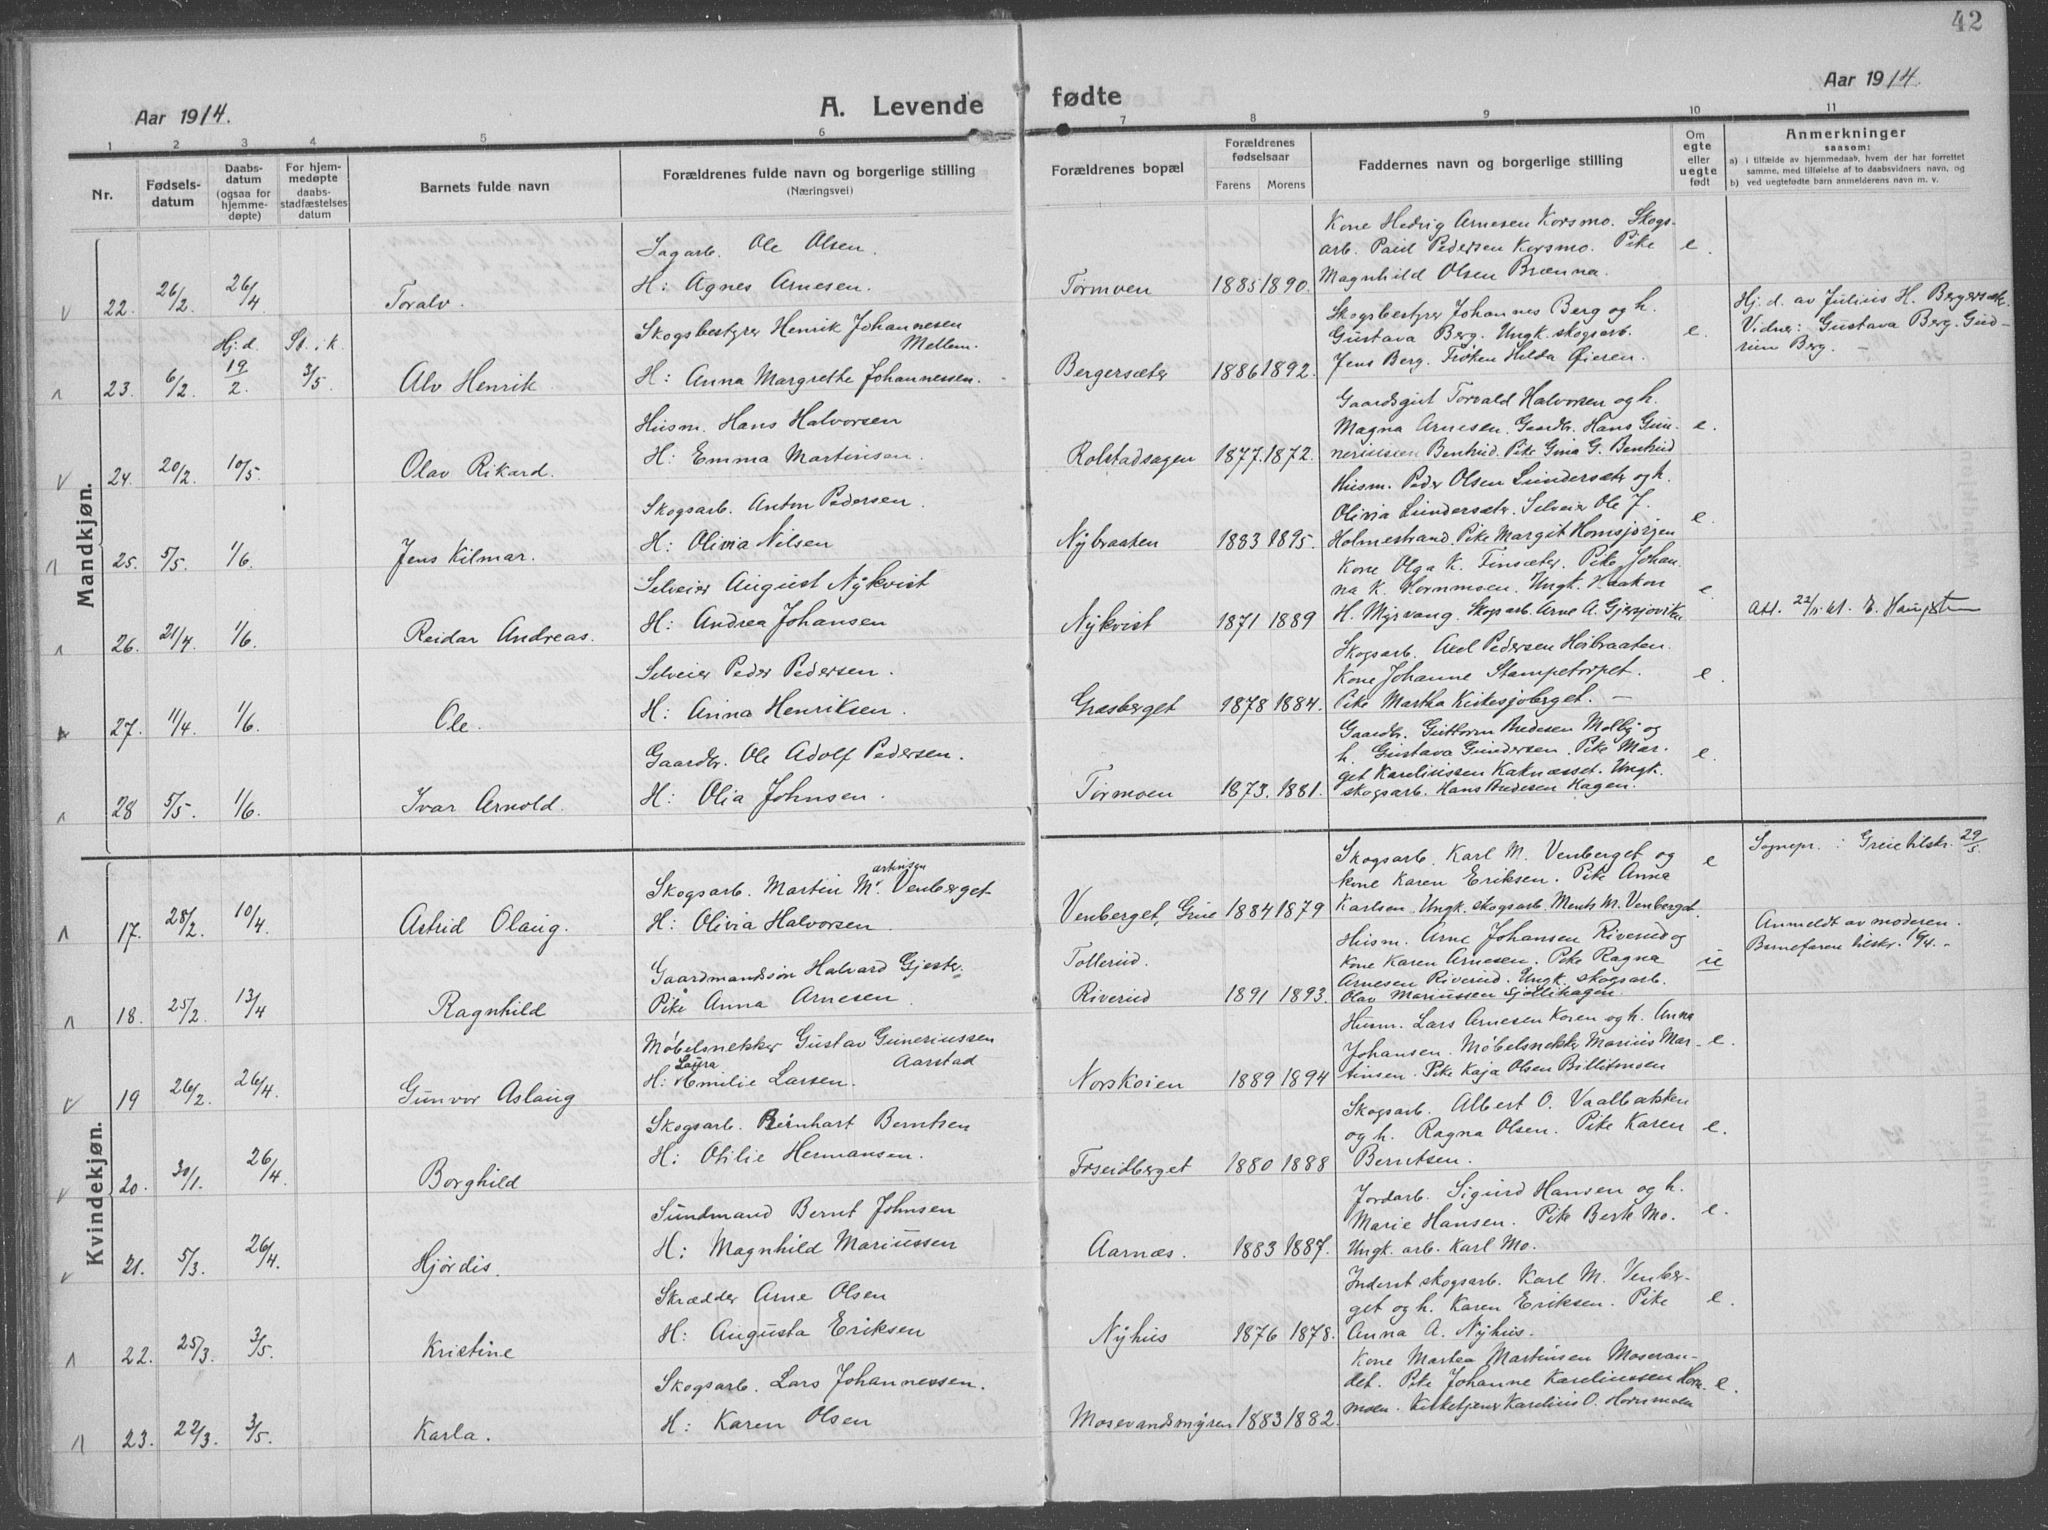 42
Aar 1914.
A. Levende
fødte
Aar 1914.
1 2 3 4 5 6 7 8 9 10 11
Nr.
Fødsels-
datum
Daabs-
datum
(ogsaa for
hjemme-
døpte)
For hjem-
medøpte
daabs-
stadfæstelses
datum
Barnets fulde navn
Forældrenes fulde navn og borgerlige stilling
(Næringsvei)
Forældrenes bopæl
Forældrenes
fødselsaar
Farens Morens
Faddernes navn og borgerlige stilling
Om
egte
eller
uegte
født
Anmerkninger
saasom:
a) i tilfælde av hjemmedaab, hvem der har forrettet
samme, med tilføielse af to daabsvidners navn, og
b) ved uegtefødte barn anmelderens navn m. v.
Mandkjøn.
22. 26/2 26/4 Toralv.
Sagarb. Ole Olsen.
H: Agnes Arnesen.
Tormoen 1885 1890.
Kone Hedvig Arnesen Korsmo. Skogs-
arb. Paul Pedersen Korsmo. Pike
Magnhild Olsen Brænna.
e.
23. 6/2. Hj.d. 19/2. St. i k. 3/5. Alv Henrik
Skogsbestyrer Henrik Johannesen
Mellem.
H: Anna Margrethe Johannessen.
Bergersæter 1886 1892.
Skogsbestyrer Johannes Berg og h.
Gustava Berg. Ungk. skogsarb.
Jens Berg. Frøken Hilda Øieren.
e.
Hj.d. av Julius H. Bergersæt.
Vidner: Gustava Berg. Gud-
run Berg. —
24. 20/2. 10/5. Olav Rikard.
Husm. Hans Halvorsen
H: Emma Martinsen.
Rolstadsagen 1877. 1872.
Gaardsgut Torvald Halvorsen og h.
Magna Arnesen. Gaardbr. Hans Gun-
neriussen Bentrud. Pike Gina G. Bentrud
e.
25. 5/5. 1/6. Jens Hilmar.
Skogsarb. Anton Pedersen.
H: Olivia Nilsen
Nybraaten 1883 1895.
Husm. Peder Olsen Lundersæter og h.
Olivia Lundersæter. Selveier Ole J.
Holmestrand. Pike Margit
e.
26. 21/4. 1/6. Reidar Andreas.
Selveier August Nykvist
H: Andrea Johansen
Nykvist 1871 1889
Kone Olga K. Finsæter. Pike Johan-
na K. Hornmoen. Ungk. Haakon
H. Myrvang. Skogsarb. Arne A.
e.
27. 11/4. 1/6. Ole.
Selveier Peder Pedersen.
H: Anna Henriksen.
Græsberget 1878 1884.
Skogsarb. Axel Pedersen Høibraaten.
Kone Johanne Stampetorpet.
Pike Martha Kirkesjøberget. —
e.
28 5/5. 1/6. Ivar Arnold.
Gaardbr. Ole Adolf Pedersen.
H: Olia Johnsen.
Tormoen 1873. 1881.
Gaardbr. Guttorm Andesen Molby og
h. Gustava Gundersen. Pike Mar-
get Kareliussen Kaknæsset. Ungk.
skogsarb. Hans Andesen Hagen.
e.
Kvindekjøn.
17. 28/2. 10/4. Astrid Olaug.
Skogsarb. Martin Martinsen Venberget
H: Olivia Halvorsen.
Venberget, Grue 1884 1879
Skogsarb. Karl M. Venberget og
kone Karen Eriksen. Pike Anna
Karlsen. Ungk. skogsarb. M. Venberget.
e
Sognepr. : Grue tilskr. 29/5.
18. 25/2. 13/4 Ragnhild
Gaardmandsøn Halvard Gjester.
Pike Anna Arnesen.
Tollerud.
Riverud 1891 1893.
Husm. Arne Johansen Riverud og
kone Karen Arnesen. Pike Ragna
Arnesen Riverud. Ungk. skogsarb.
Olav Mariussen Sjøtlihagen.
u
Anmeldt av moderen.
Barnefaren tilskr. 16/4. -
19 26/2. 26/4. Gunvor Aslaug
Møbelsnekker Gustav Guneriussen
Aarstad
H: Laura Emilie Larsen.
Norskoien 1889 1894
Husm. Lars Arnesen Koren og h. Anna
Johansen. Møbelsnekker Marius Mar-
tinsen. Pike Kaja Olsen Billitmoen
e.
20. 30/1. 26/4. Borghild
Skogsarb. Bernhart Berntsen
H: Otilie Hermansen.
Froseidberget 1880 1888
Skogsarb. Albert O. Vaalbakken
og h. Ragna Olsen. Pike Karen
Berntsen.
e.
21. 5/3. 26/4. Hjørdis.
Sundmand Bernt Johnsen
H: Magnhild Mariussen
Aarnæs. 1883 1887.
Jordarb. Sigurd Hansen og h.
Marie Hansen. Pike Berte Mo.
Ungk. arb. Karl Mo.
e.
22. 25/3. 3/5. Kristine
Skrædder Arne Olsen
H: Augusta Eriksen
Nyhus 1876 1878.
Inderst skogsarb. Karl M. Venber-
get og h. Karen Eriksen. Pike
Anna A. Nyhus.
e.
23. 22/3. 3/5. Karla.
Skogsarb. Lars Johannessen.
H: Karen Olsen
Mosevandsmyren 1883 1882.
Kone Martea Martinsen Mosevan-
det. Pike Johanne Kareliussen Horn-
moen. Kirketjener Karelius O. Hornmoen
e.